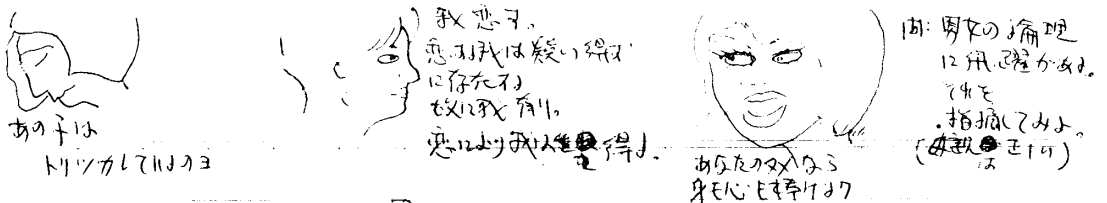 あの子は
トリツカレているのヨ
我 恋す。
恋する我は疑い得ず
に存在する
故に我 有り。
恋により我は 得る。
あなたのタメなら
身も心も捧げます
問: 男女の論理
に飛躍がある。
それを
指摘してみよ。